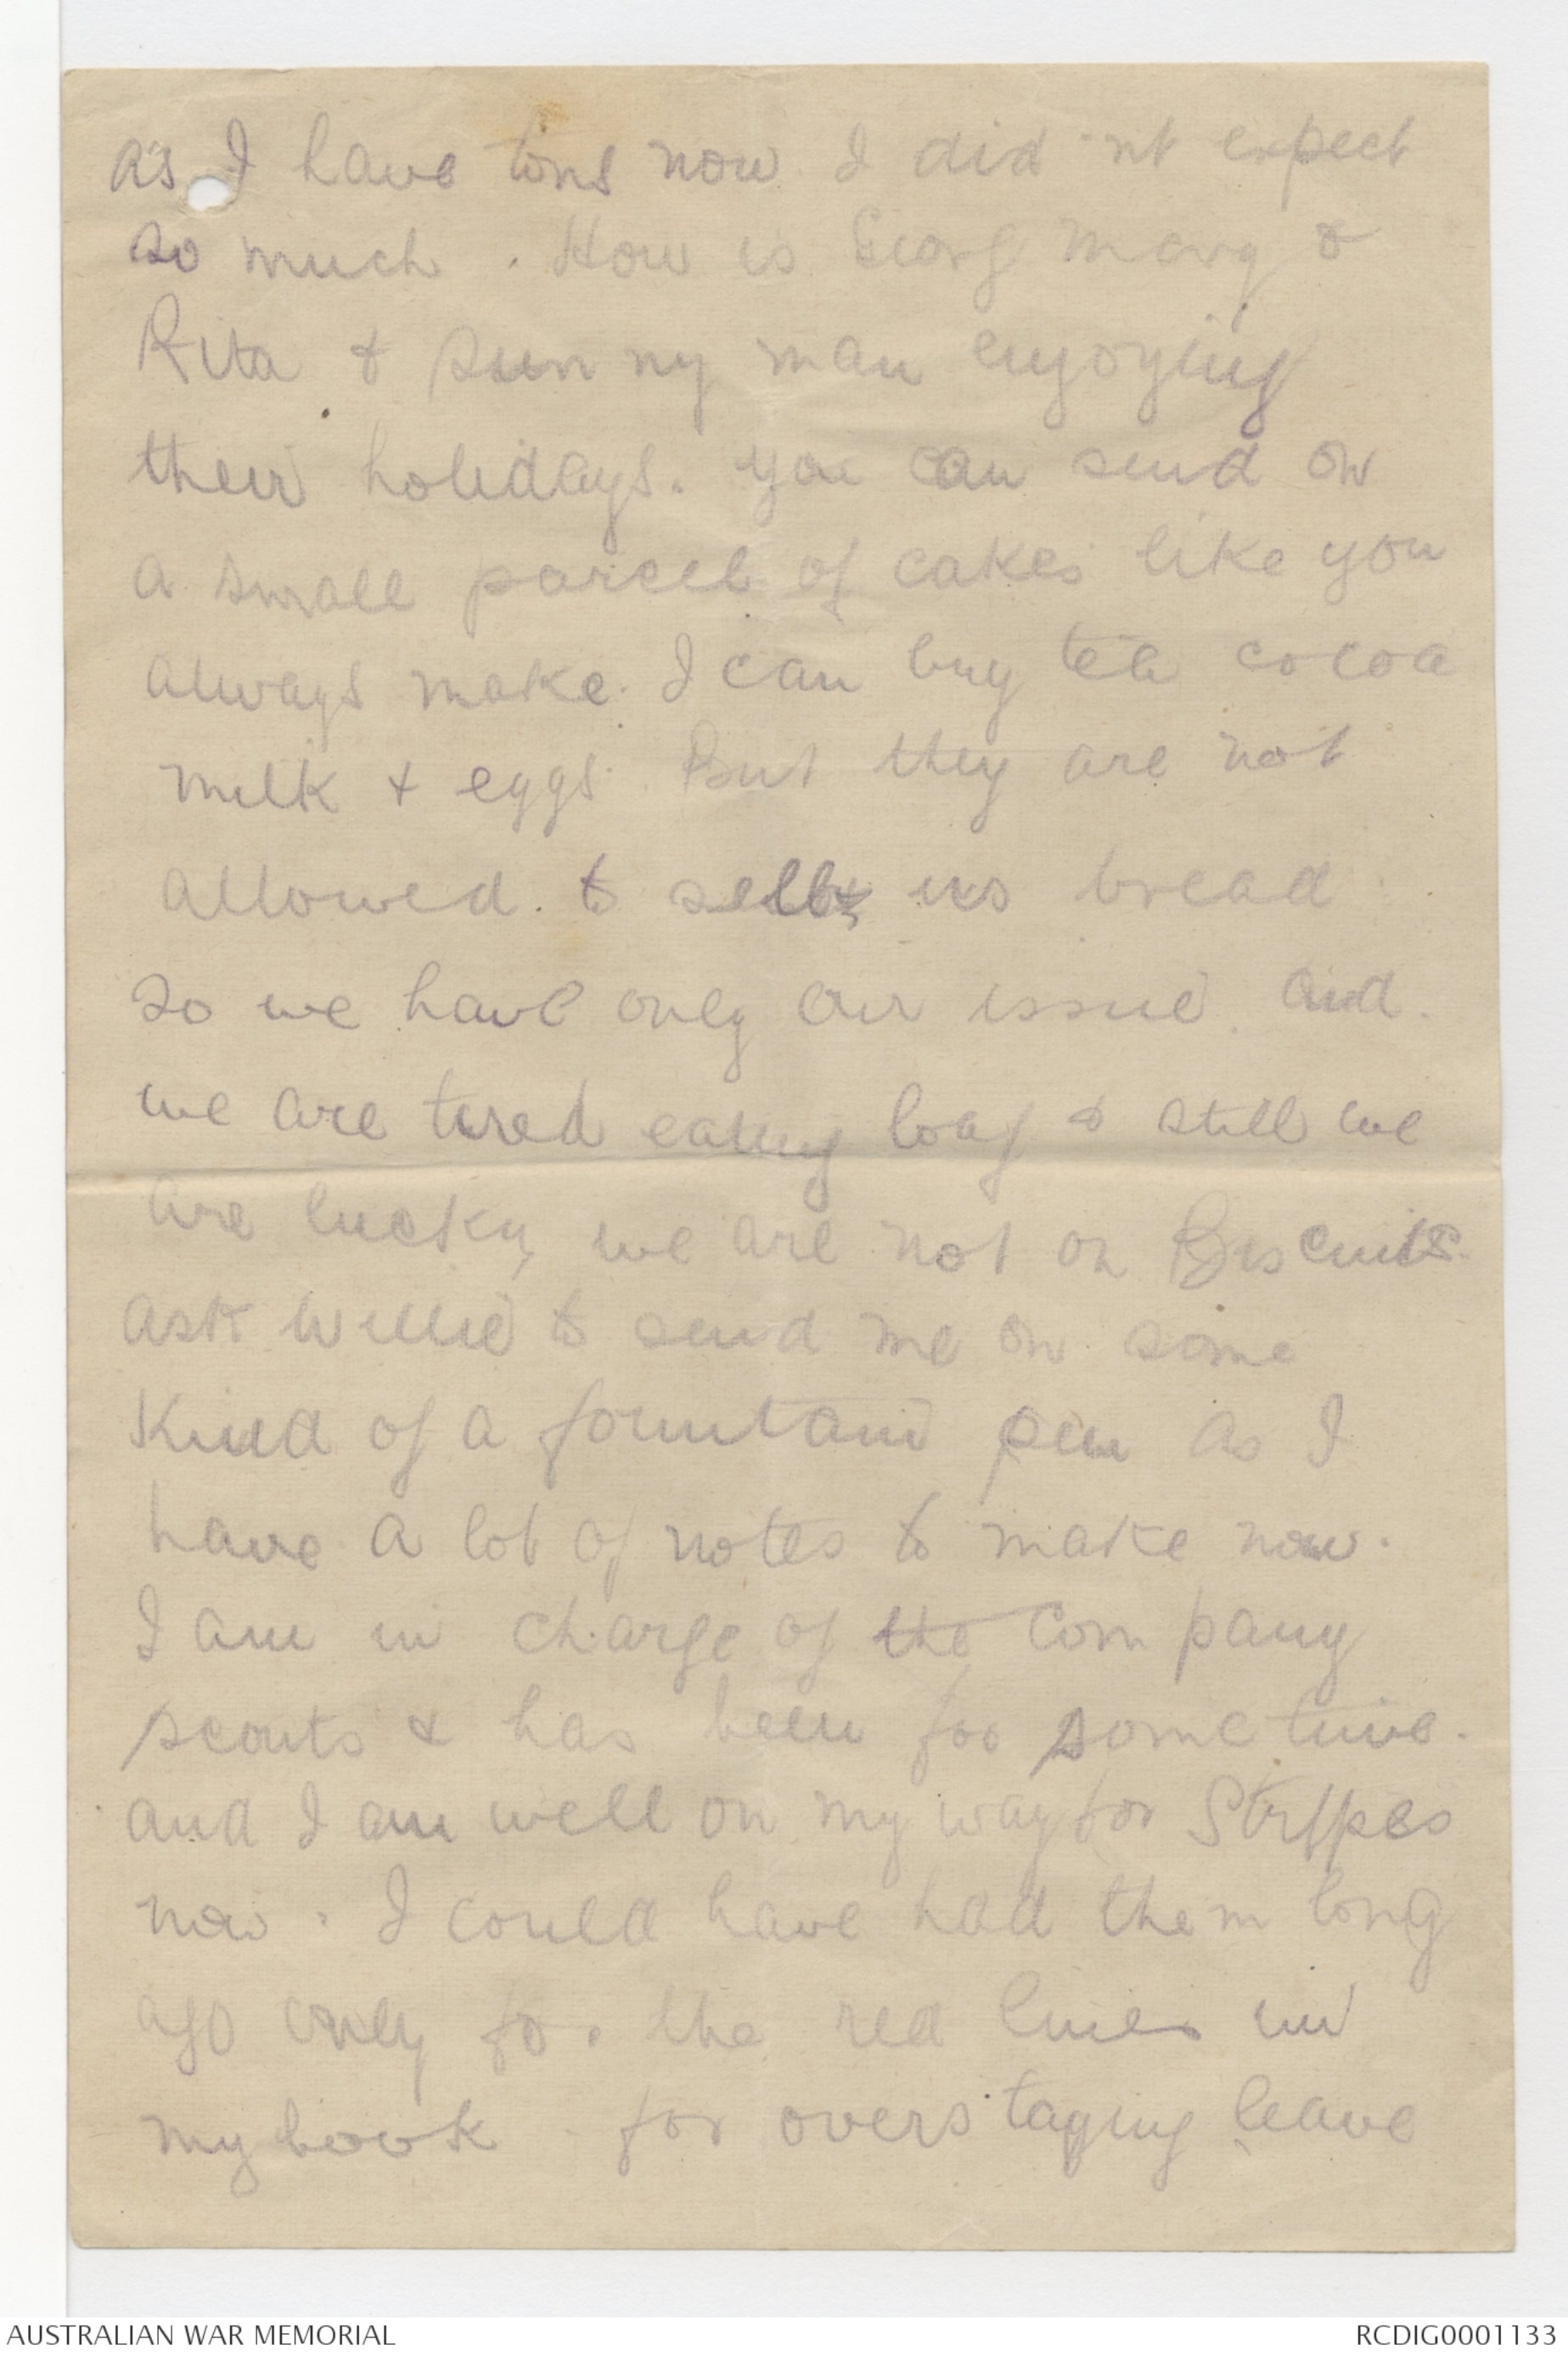 as I have tons now I did'nt expect
so much. How is Georg Marg &
Rita & Sunny man enjoying
their holidays. you can send on
a small parcel of cakes like you
always make. I can buy tea cocoa
milk & eggs. But they are not
allowed to sell us bread
so we have only our issue. and
we are tired eating loaf & still we
are lucky, we are not on Biscuits.
ask Willie to send me on some
kind of a fountain pen as I
have a lot of notes to make now.
I am in charge of the Company
scouts & has been for some time.
and I am well on my way for Stripes
now. I could have had them long
ago only for the red lines in
my book for overstaying leave
AUSTRALIAN WAR MEMORIAL
RCDIG0001133